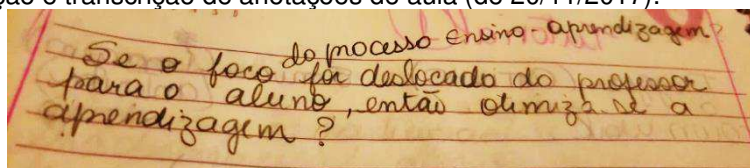 ção e transcrição de anotações de aula (de 20/11/2017):
do processo ensino-aprendizagem?
Se o foco for deslocado do professor
para o aluno, então otimiza-se a
aprendizagem?